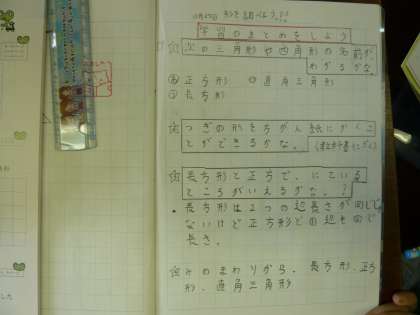 学習のまとめをしよう
次の三角形や四角形の名前が、
わかるかな。
正方形 直角三角形
長方形
つぎの形を方がん紙にかくこ
とができるかな。
長方形と正方で、にている
ところがいえるかな。?
長方形は2つの辺長さが同じじゃ
ないけど正方形どの辺も同じ
長さ。
みのまわりから、長方形、正方
形、直角三角形